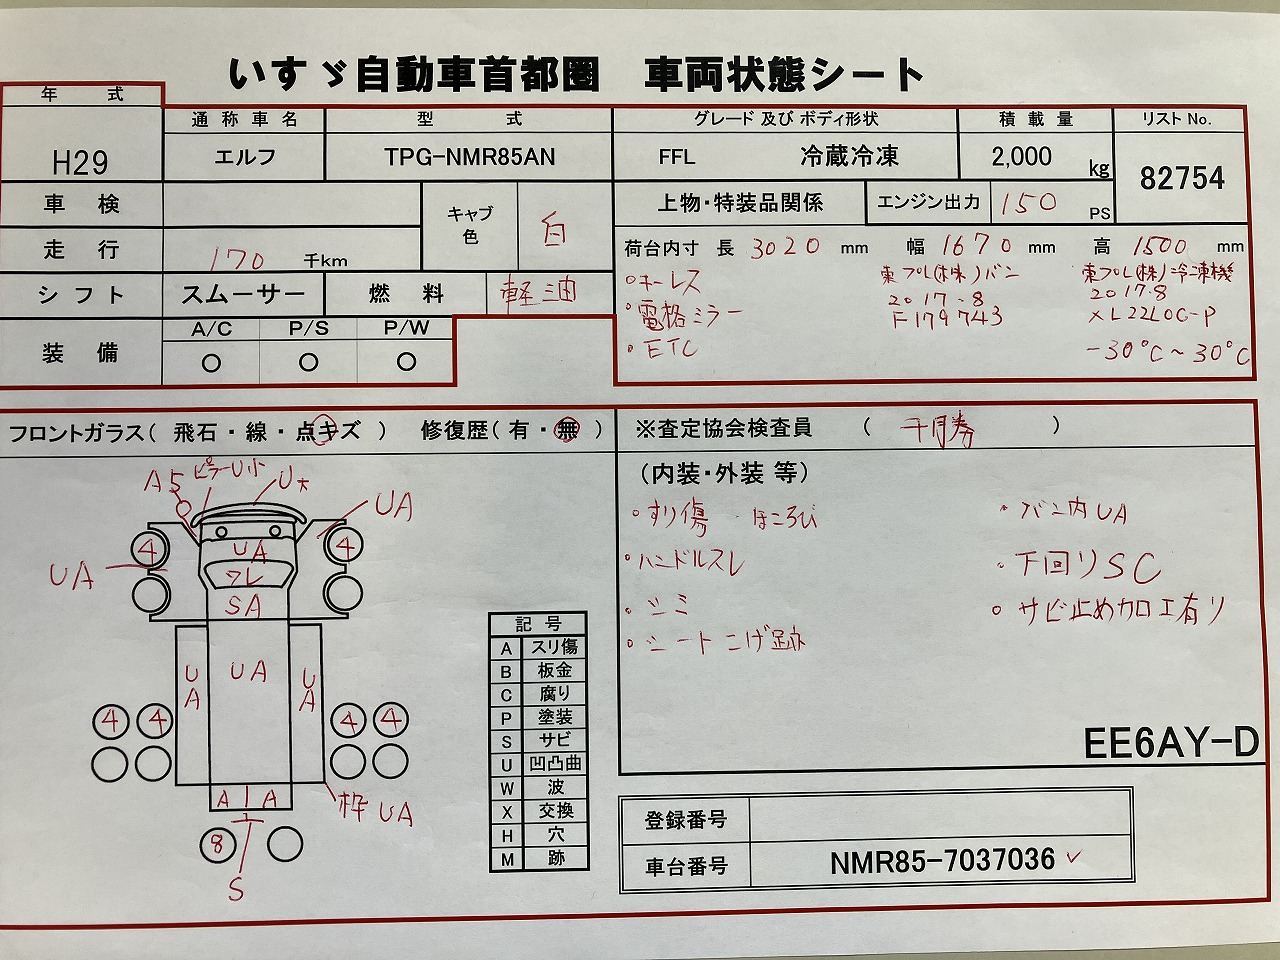 いすゞ自動車首都圏 車両状態シート
年 式
H29
通称車名 型 式 グレード 及び ボディ形状 積載量 リスト No.
エルフ TPG-NMR85AN FFL 冷蔵冷凍 2,000 kg 82754
車 検
キャブ色 白
上物・特装品関係 エンジン出力 150 PS
走 行 170 千km
荷台内寸 長 3020 mm 幅 1670 mm 高 1500 mm
シフト スムーサー 燃 料 軽油
装 備 A/C P/S P/W
○ ○ ○
・ホーレス
・電格ミラー
・ETC
東プレ(株)バン
2017.8
F179743
東プレ(株)冷凍機
2017.8
XL22LOC-P
-30℃~30℃
フロントガラス( 飛石・線・点キズ ) 修復歴(有・無)
※査定協会検査員 ( )
(内装・外装 等)
・すり傷 ほころび
・ハンドルスレ
・シミ
・シートこげ跡
・バン内UA
・下回りSC
・サビ止め加工有り
A5 ピラーU小 U大
UA
4 4
UA
UA
ワレ
SA
UA UA UA
4 4 4 4
A A
枠 UA
8
S
記 号
A スリ傷
B 板金
C 腐り
P 塗装
S サビ
U 凹凸曲
W 波
X 交換
H 穴
M 跡
EE6AY-D
登録番号
車台番号 NMR85-7037036 ✓